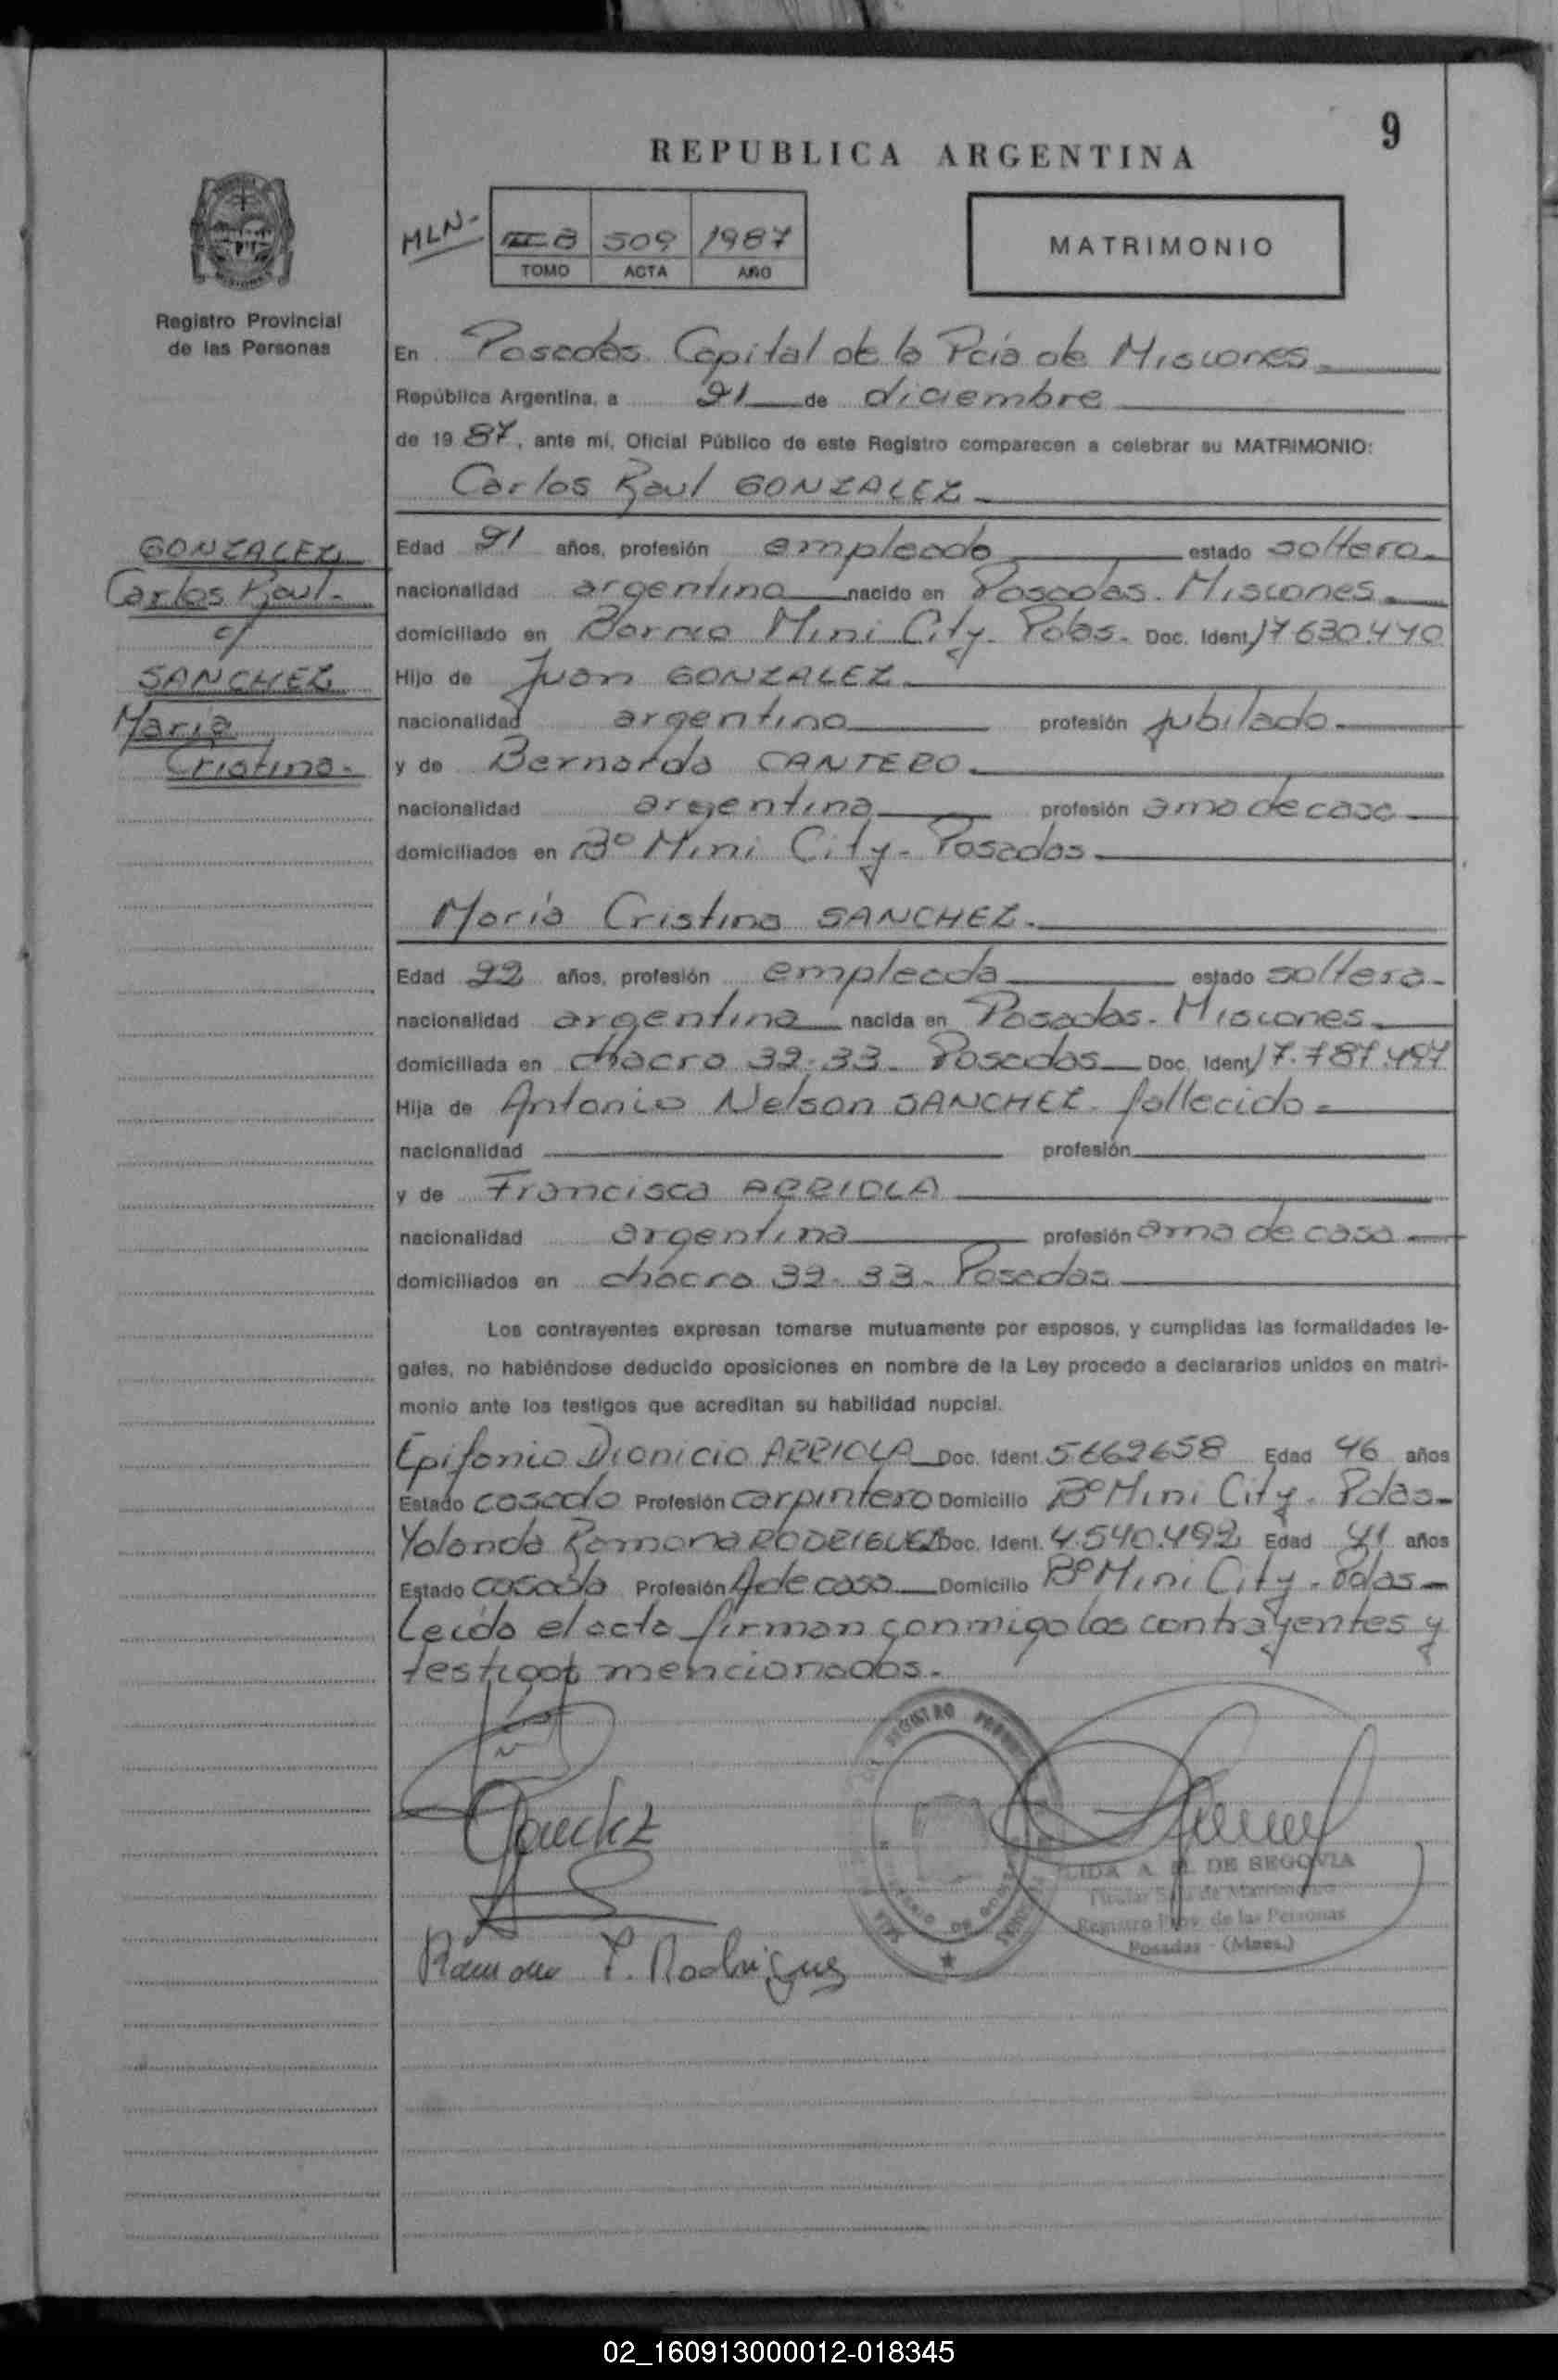 9
REPUBLICA ARGENTINA
MLN-
III B 509 1987
TOMO ACTA AÑO
MATRIMONIO
Registro Provincial
de las Personas
En Posadas Capital de la Pcia de Misiones
República Argentina, a 21 de diciembre
de 19 87, ante mí, Oficial Público de este Registro comparecen a celebrar su MATRIMONIO:
Carlos Raul GONZALEZ
GONZALEZ
Carlos Raul-
c/
SANCHEZ
María
Cristina-
Edad 21 años, profesión empleado estado soltero
nacionalidad argentina nacido en Posadas. Misiones
domiciliado en Barrio Mini City- Pdas. Doc. Ident. 17630.440
Hijo de Juan GONZALEZ
nacionalidad argentino profesión jubilado
y de Bernarda CANTERO
nacionalidad argentina profesión ama de casa
domiciliados en Bº Mini City- Posadas
María Cristina SANCHEZ
Edad 22 años, profesión empleada estado soltera-
nacionalidad argentina nacida en Posadas. Misiones
domiciliada en chacra 32-33- Posadas Doc. Ident. 17.787.497
Hija de Antonio Nelson SANCHEZ- fallecido
nacionalidad profesión
y de Francisca ARRIOLA
nacionalidad argentina profesión ama de casa
domiciliados en chacra 32-33- Posadas
Los contrayentes expresan tomarse mutuamente por esposos, y cumplidas las formalidades le-
gales, no habiéndose deducido oposiciones en nombre de la Ley procedo a declararlos unidos en matri-
monio ante los testigos que acreditan su habilidad nupcial.
Epifanio Dionicio ARRIOLA Doc. Ident. 5662658 Edad 46 años
Estado casado Profesión carpintero Domicilio Bº Mini City. Pdas-
Yolanda Ramona RODRIGUEZ Doc. Ident. 4.540.492 Edad 41 años
Estado casada Profesión A de casa Domicilio Bº Mini City. Pdas
Leída el acta firman conmigo los contrayentes y
testigos mencionados.
Sanchez
LIDA A. DE SEGOVIA
Titular Sala de Matrimonio
Registro Prov. de las Personas
Posadas - (Mnes.)
Ramona Y. Rodriguez
02_160913000012-018345